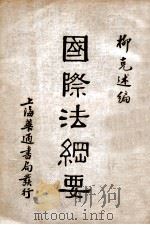 柳克述编
國際法綱要
上海華通書局發行